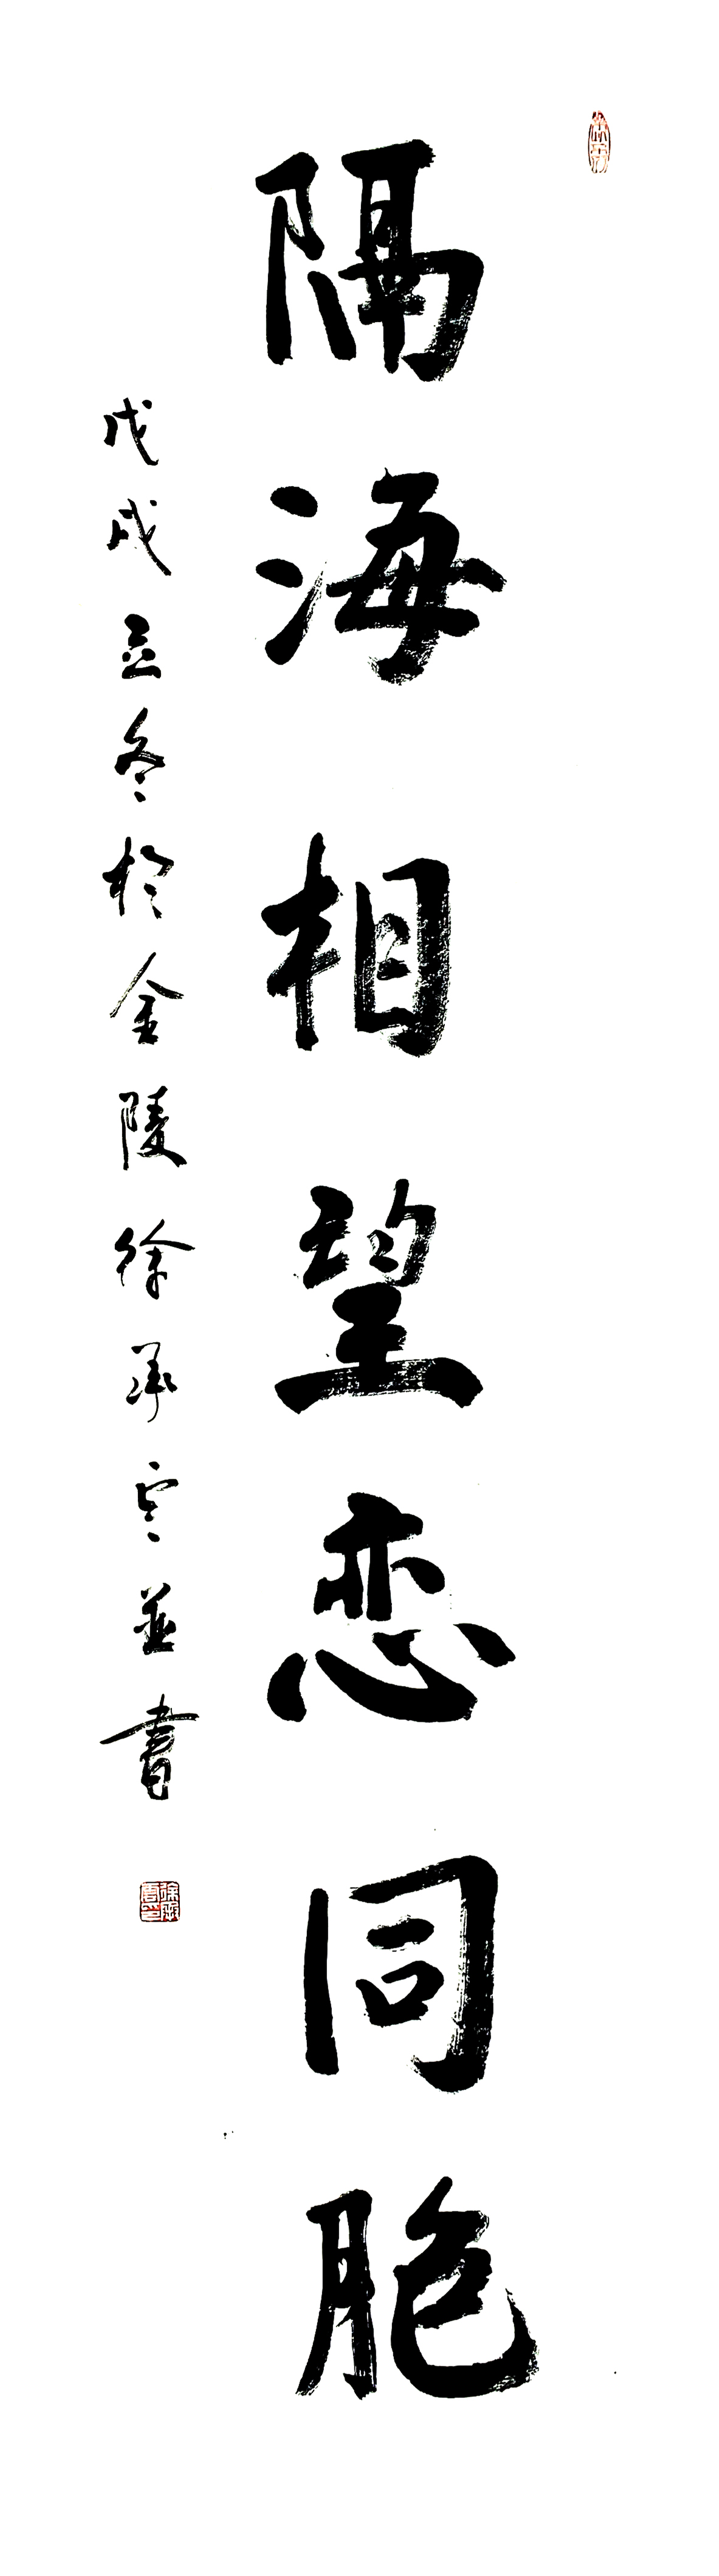 隔海相望恋同胞
戊戌立冬於金陵徐承並書